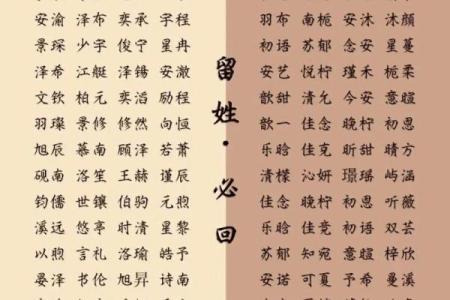 安渝 泽布 奕承 宇程
景琛 少宇 俊宁 星冉
泽希 江艇 泽锡 安澈
文钦 柏元 奕滔 励程
羽璨 景修 修然 向恒
旭辰 慕南 顾泽 若萧
砚南 洛笙 王赫 谨辰
钧儒 世镶 伯驹 元煦
溪远 悠亭 时清 星黎
以煦 言礼 洛瑜 皓予
晏泽 书伦 旭昇 诗南
留姓·必回
羽布 南栀 安沐 沐颜
初语 苏郁 念安 星蔓
安艺 悦柠 瑾禾 栀柔
歆甜 清允 今安 意暄
歆一 佳念 晚柠 初思
乐晗 佳克 昕甜 晴方
清檬 沁妍 璟瑶 屿涵
佳愉 念恩 初恩 听薇
乐晗 佳竞 初语 双芸
苏郁 知宛 意暄 梓欣
安诺 可夏 予希 曼溪